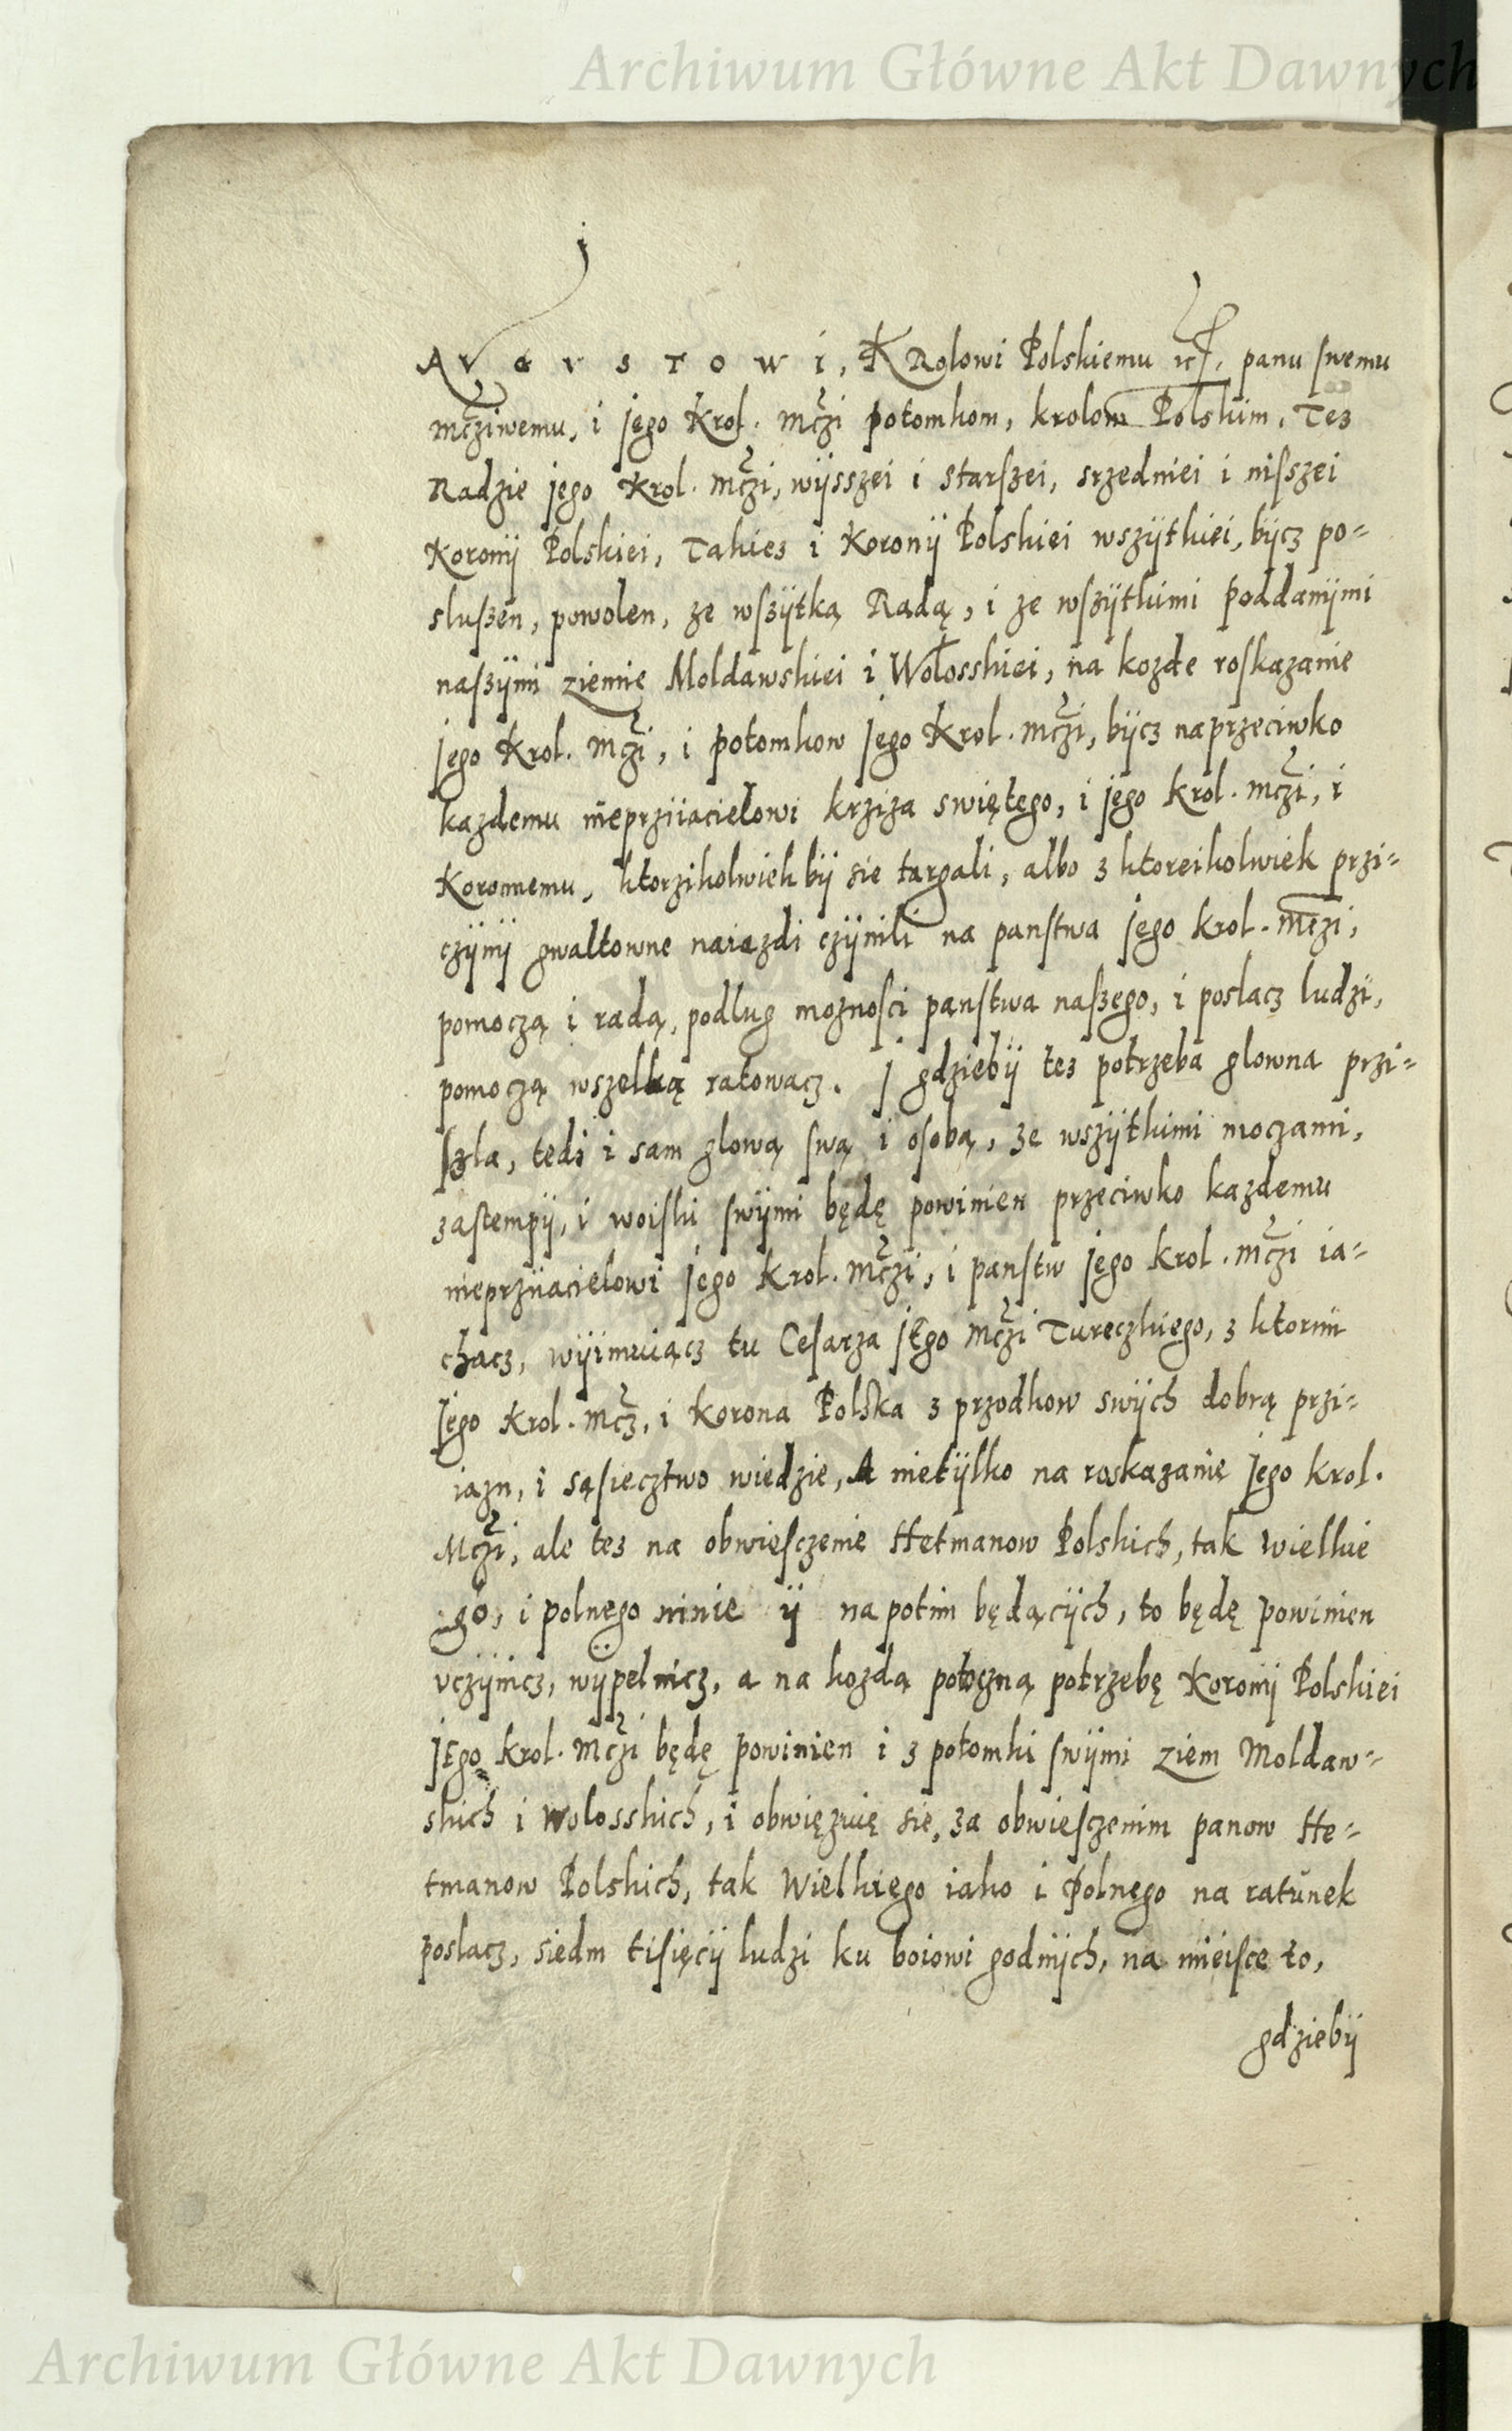 Archiwum Główne Akt Dawnych
Avgvstowi, Krolowi Polskiemu etc. panu swemu
mczÿwemu, i jego Krol. mczi potomkom, krolom Polskim, Tes
Radzie jego Krol. mczi, wÿsszei i starszei, srzedniei i nisszei
Koronÿ Polskiei, Takies i Koronÿ Polskiei wszÿtkiei, bÿcz po=
sluszen, powolen, ze wszÿtką Radą, i ze wszÿtkimi poddanÿmi
naszÿmi ziemie Moldawskiei i Wołosskiei, na kozde roskazanie
jego Krol. mczi, i potomkow jego Krol. mczi, bÿcz naprzeciwko
kazdemu nieprziiacielowi krziza swiętego, i jego krol. mczi, i
Koronnemu, ktorzikolwiek bÿ sie targali, albo z ktoreikolwiek przi=
czÿnÿ gwaltowne naiazdi czÿnili na panstwa jego krol. mczi,
pomoczą i radą, podlug moznosci panstwa naszego, i poslacz ludzi,
pomoczą wszelką ratowacz. J gdziebÿ tes potrzeba glowna przi=
szla, tedi i sam glową swą i osobą, ze wszÿtkimi moczami,
zastempÿ, i woiski swÿmi będę powinien przeciwko kazdemu
nieprziiacielowi jego krol. mczi, i panstw jego krol. mczi ia=
chacz, wÿimuiącz tu Cesarza jego mczi Tureczkiego, z ktorim
jego Krol. mcz, i Korona Polska z przodkow swÿch dobrą przi=
iazn, i sąsiecztwo wiedzie, A nietÿlko na roskazanie jego krol.
Mczi, ale tes na obwiesczenie Hetmanow Polskich, tak wielkie
go, i polnego ninie ÿ na potim będącÿch, to będę powinien
vczÿnicz, wÿpelnicz, a na kozdą potoczną potrzebę Koronÿ Polskiei
jego krol. mczi będę powinien i z potomki swÿmi ziem Moldaw=
skich i wolosskich, i obwięzuię sie, za obwiesczenim panow He=
tmanow Polskich, tak Wielkiego iako i Polnego na ratunek
poslacz, siedm tisięcÿ ludzi ku boiowi godnÿch, na mieisce to,
gdziebÿ
Archiwum Główne Akt Dawnych